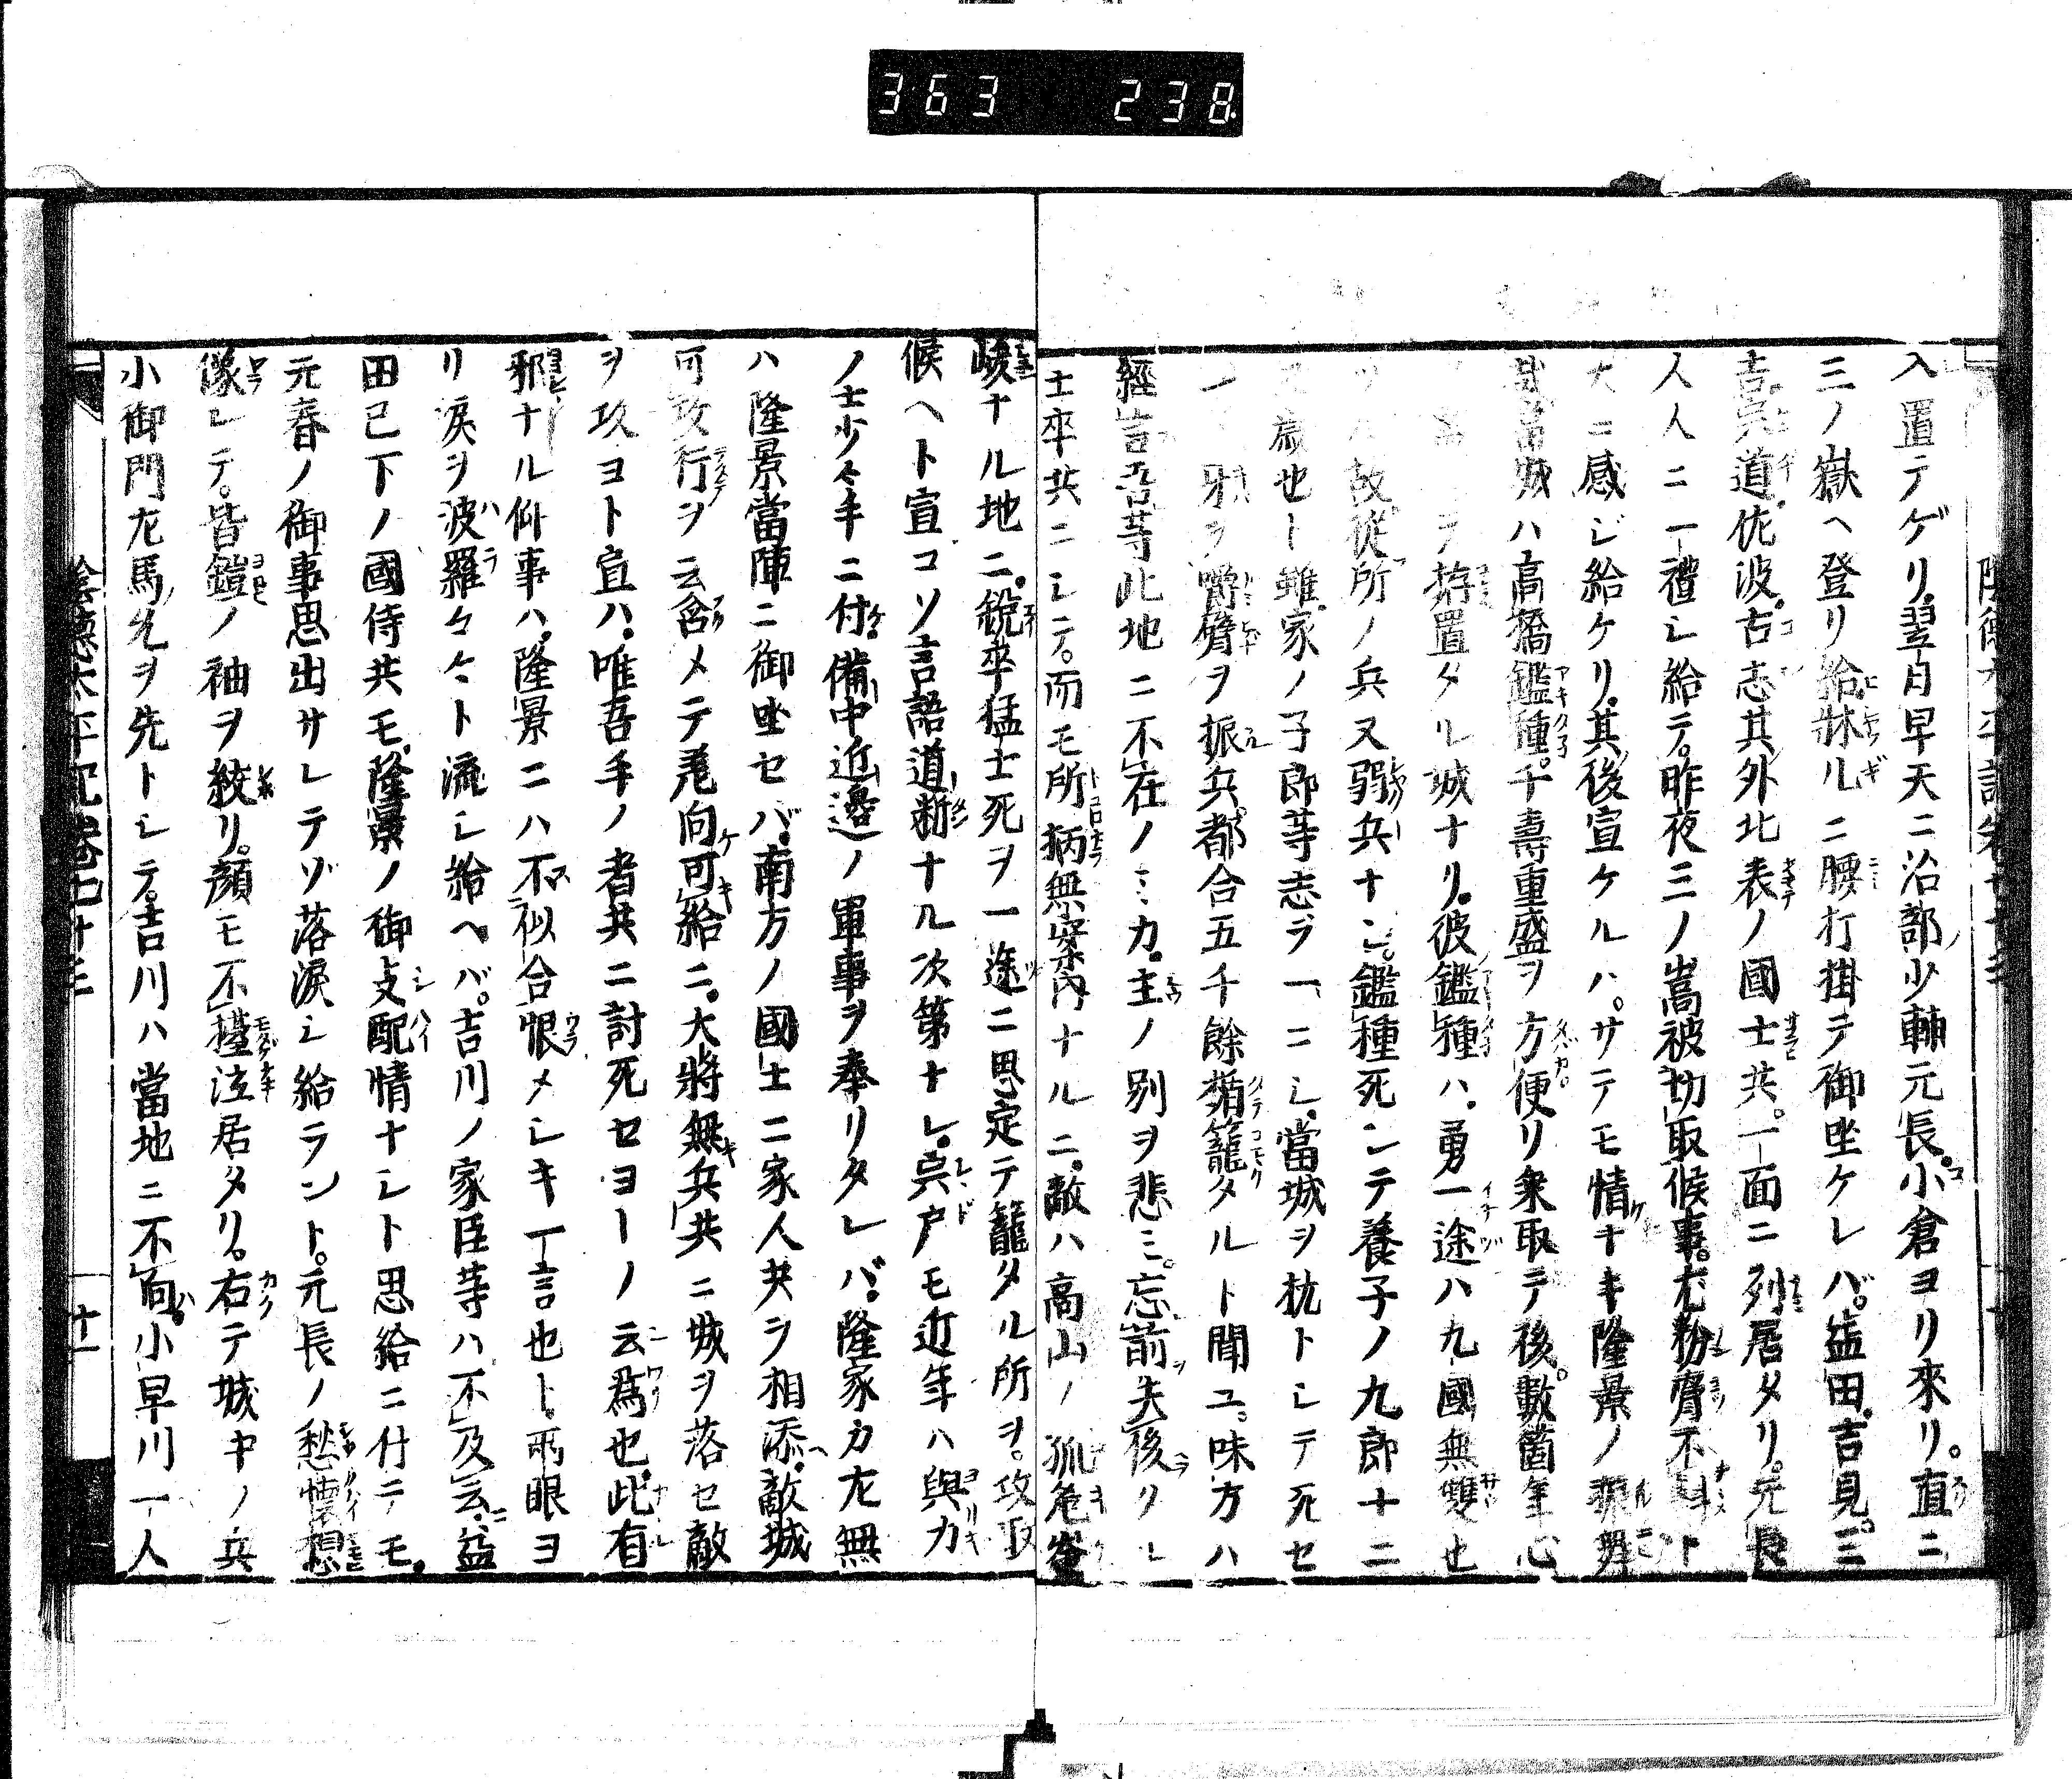 363 238
入置テゲリ。翌日早天ニ治部ノ少輔元長。小倉ヨリ來リ。直ニ
三ノ嶽ヘ登リ給。牀ルニ腰打掛テ御坐ケレバ。益田。吉見。三
吉。宍道。佐波。古志其外北表ノ國士共。一面ニ列居タリ。元長
人人ニ一禮シ給テ。昨夜三ノ嵩被切取候事。尤粉膏不斜ト
大ニ感ジ給ケリ。其後宣ケルハ。サテモ情ナキ隆景ノ振舞
當城ハ高橋鑑種。千壽重盛ヲ方便リ乗取テ後。數箇年心
ヲ 拵置タル城ナリ。彼鑑種ハ。勇一途ハ九國無雙也
故從所ノ兵又弱兵ナシ。鑑種死シテ養子ノ九郎十二
歳也ト雖。家ノ子郎等志ヲ一ニシ。當城ヲ枕トシテ死セ
ン 牙ヲ嚼臂ヲ振兵。都合五千餘楯籠タルト聞ユ。味方ハ
經言吾等此地ニ不在ノミカ。主ノ別ヲ悲ミ。忘前失後リシ
士卒共ニシテ。而モ所柄無案内ナルニ。敵ハ高山ノ孤危峯
峻ナル地ニ。鋭卒猛士死ヲ一途ニ思定テ籠タル所ヲ。攻取
候ヘト宣コソ言語道斷ナル次第ナレ。宍戸モ近年ハ與力
ノ士少々手ニ付。備中近邊ノ軍事ヲ奉リタレバ。隆家カ尤無
ハ隆景當陣ニ御坐セバ。南方ノ國士ニ家人共ヲ相添。敵城
可攻行ヲ云含メテ鳧向可給ニ。大將無兵共ニ城ヲ落セ敵
ヲ攻ヨト宣ハ。唯吾手ノ者共ニ討死セヨーノ云爲也。此有
邪ナル仰事ハ。隆景ニハ不似合恨メシキ一言也ト。兩眼ヨ
リ涙ヲ波羅々々ト流シ給ヘバ。吉川ノ家臣等ハ不及云。益
田已下ノ國侍共モ。隆景ノ御支配情ナシト思給ニ付テモ。
元春ノ御事思出サレテゾ落涙シ給ラント。元長ノ愁懷想
像レテ。皆鎧ノ袖ヲ絞リ。顔モ不擡泣居タリ。右テ城中ノ兵
小御門左馬ノ允ヲ先トシテ。吉川ハ當地ニ不向。小早川一人